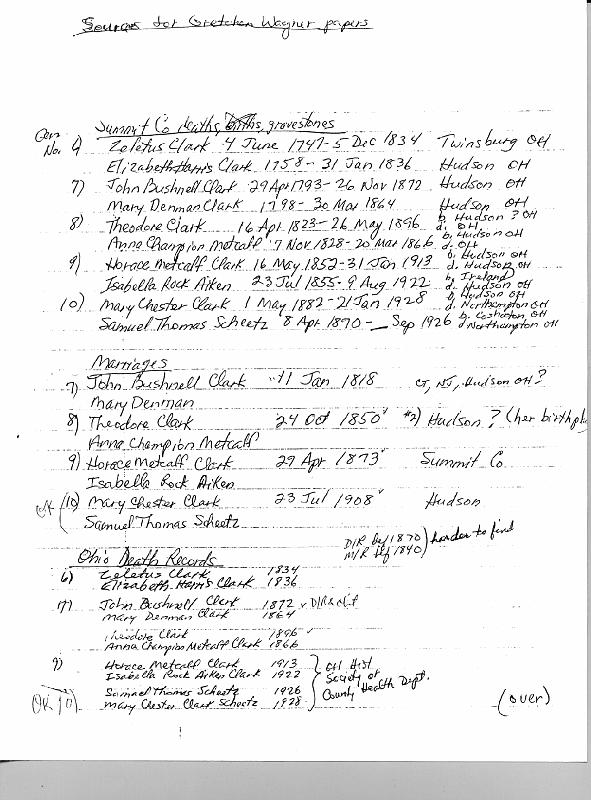 Sources for Gretchen Wagner papers
Summit Co deaths, births, gravestones
Gen
No. 6) Zeletus Clark 4 June 1747-5 Dec 1834 Twinsburg OH
Elizabeth Harris Clark 1758 - 31 Jan 1836 Hudson OH
7) John Bushnell Clark 29 Apr 1793-26 Nov 1872 Hudson OH
Mary Denman Clark 1798 - 30 Mar 1864 Hudson OH
8) Theodore Clark 16 Apr 1823-26 May 1896 b. Hudson? OH d. OH
Anna Champion Metcalf 7 Nov 1828-20 Mar 1866 b. Hudson OH d. OH
9) Horace Metcalf Clark 16 May 1852-31 Jan 1913 b. Hudson OH d. Hudson OH
Isabella Rock Aiken 23 Jul 1855-9 Aug 1922 b. Ireland d. Hudson OH
10) Mary Chester Clark 1 May 1882-21 Jan 1928 b. Hudson OH d. Northampton OH
Samuel Thomas Scheetz 8 Apr 1870-__ Sep 1926 b. Coshocton, OH d. Northampton OH
Marriages
7) John Bushnell Clark 11 Jan 1818 CT, NJ, Hudson OH?
Mary Denman
8) Theodore Clark 24 Oct 1850 #2) Hudson? (her birthpla
Anna Champion Metcalf
9) Horace Metcalf Clark 29 Apr 1873 Summit Co
Isabella Rock Aiken
OK (10) Mary Chester Clark 23 Jul 1908 Hudson
Samuel Thomas Scheetz
D/R bef 1870
M/R bef 1840) harder to find
Ohio Death Records
6) Zeletus Clark 1834
Elizabeth Harris Clark 1836
7) John Bushnell Clark 1872 D/R
Mary Denman Clark 1864
Theodore Clark 1896
Anna Champion Metcalf Clark 1866
9) Horace Metcalf Clark 1913
Isabella Rock Aiken Clark 1922
Samuel Thomas Scheetz 1926
OK 10) Mary Chester Clark Scheetz 1928
OH Hist
Society or
County Health Dept.
(over)